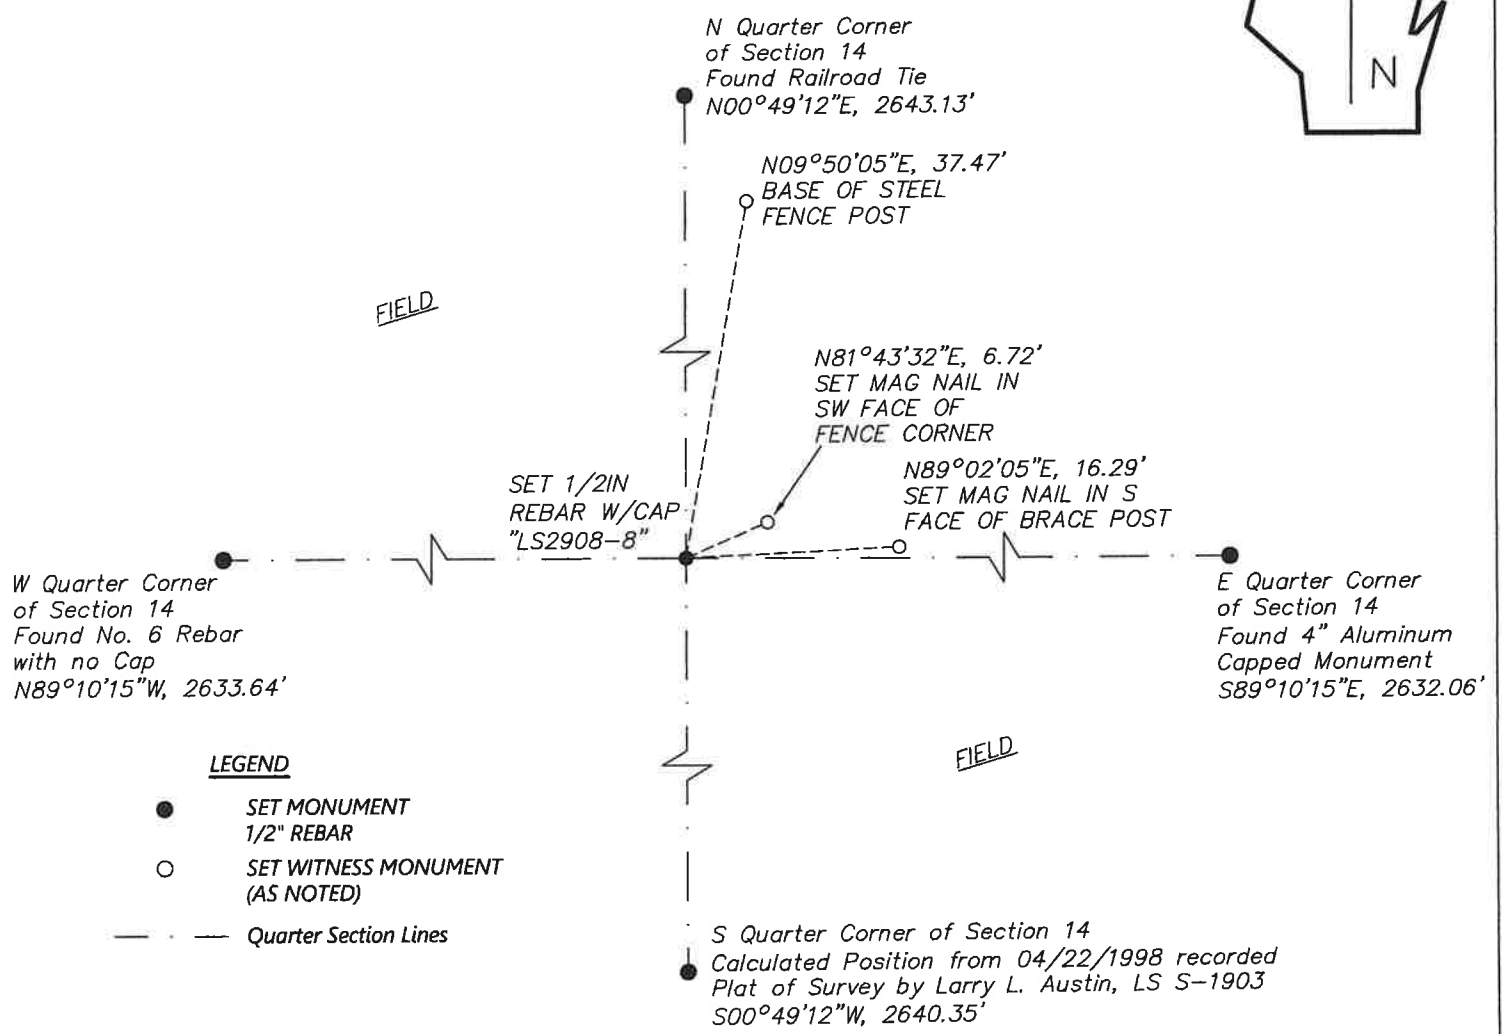 N Quarter Corner
of Section 14
Found Railroad Tie
N00°49'12"E, 2643.13'
N
N09°50'05"E, 37.47'
BASE OF STEEL
FENCE POST
FIELD
N81°43'32"E, 6.72'
SET MAG NAIL IN
SW FACE OF
FENCE CORNER
N89°02'05"E, 16.29'
SET MAG NAIL IN S
FACE OF BRACE POST
SET 1/2IN
REBAR W/CAP
"LS2908-8"
W Quarter Corner
of Section 14
Found No. 6 Rebar
with no Cap
N89°10'15"W, 2633.64'
E Quarter Corner
of Section 14
Found 4" Aluminum
Capped Monument
S89°10'15"E, 2632.06'
FIELD
LEGEND
SET MONUMENT
1/2" REBAR
SET WITNESS MONUMENT
(AS NOTED)
Quarter Section Lines
S Quarter Corner of Section 14
Calculated Position from 04/22/1998 recorded
Plat of Survey by Larry L. Austin, LS S-1903
S00°49'12"W, 2640.35'